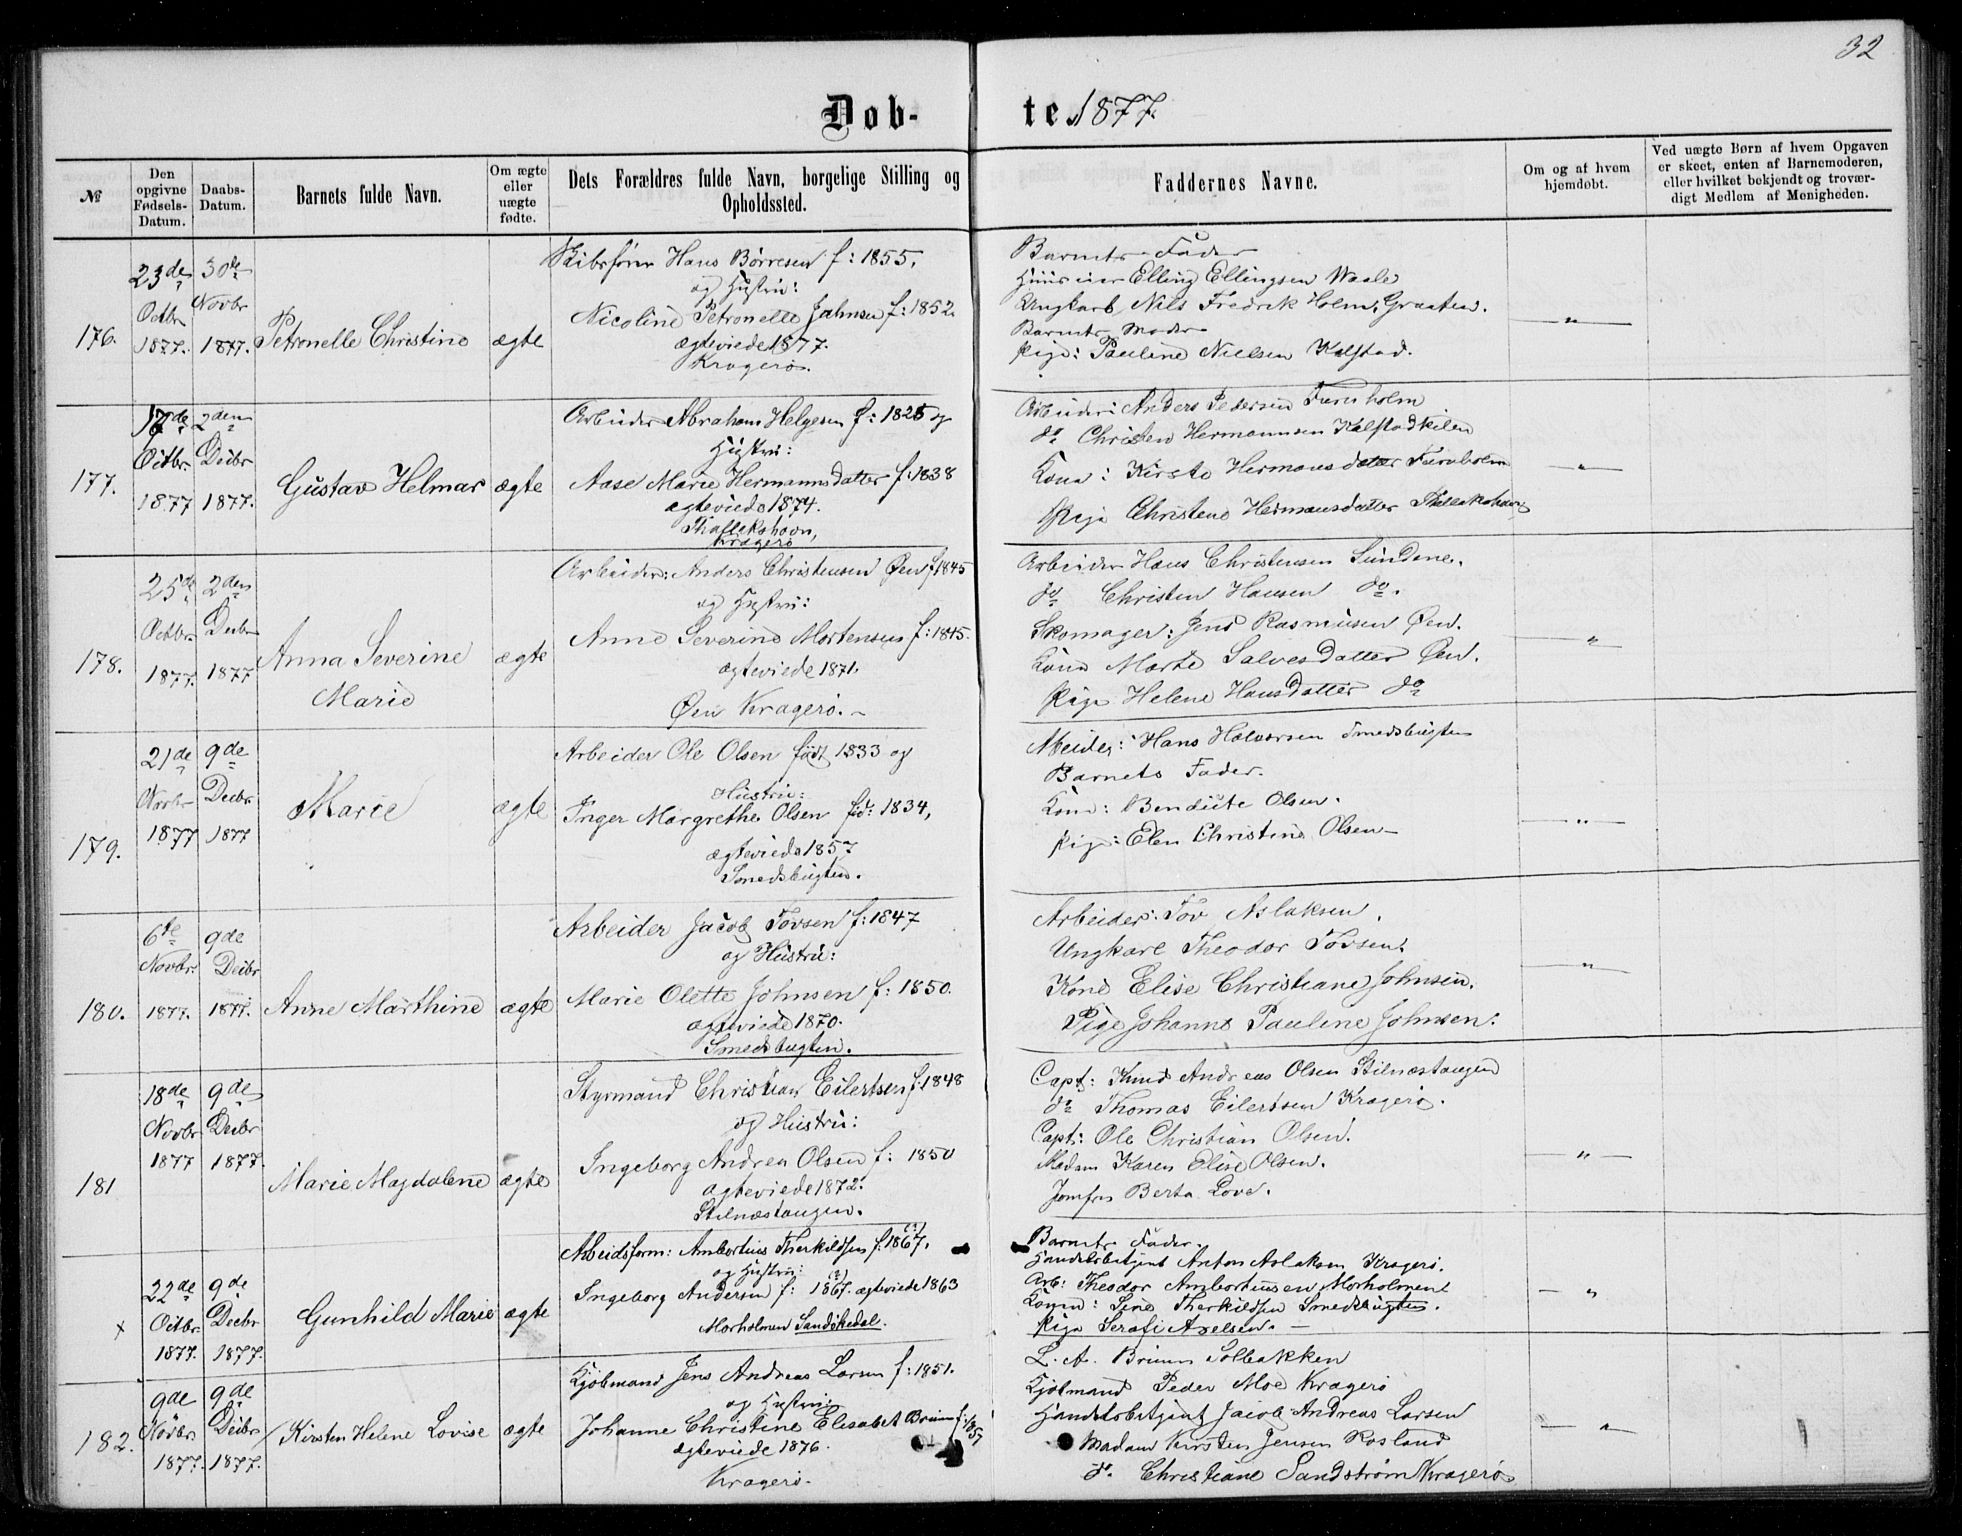 32
Døb-
te 1877.
№
Den opgivne Fødsels-Datum.
Daabs-Datum.
Barnets fulde Navn.
Om ægte eller uægte fødte.
Dets Forældres fulde Navn, borgelige Stilling og Opholdssted.
Faddernes Navne.
Om og af hvem hjemdøbt.
Ved uægte Børn af hvem Opgaven er skeet, enten af Barnemoderen, eller hvilket bekjendt og troværdigt Medlem af Menigheden.
176.
23de Octbr 1877.
30de Novbr 1877.
Petronelle Christine
ægte
Skibsfører Hans Børresen f: 1855,
og Hustru:
Nicoline Petronelle Jahnsen f: 1852.
ægteviede 1877.
Kragerø.
Barnets Fader
Elling Ellingsen Waale
Ungkarl Nils Fredrik Holm, Graaten.
Barnets Moder
Pige: Pauline Nielsen Kalstad.
— " —
177.
17de Octbr. 1877
2den Decbr 1877.
Gustav Helmar
ægte
Arbeider Abraham Helgesen f: 1825 og
Hustru:
Aase Marie Hermannsdatter f: 1838
ægteviede 1874.
Thallakshavn,
Kragerø
Arbeider: Anders Pedersen Furuholm
do Christen Hermannsen Kalstadkilen
Kona: Kirste Hermansdatter Furuholm
Pige Christene Hermansdatter Thallakshavn
— " —
178.
25de Octbr. 1877.
2den Decbr 1877
Anna Severine
Marie
ægte
Arbeider: Anders Christensen Øen f 1845
og Hustru:
Anne Severine Mortensen f: 1845.
ægteviede 1871.
Øen Kragerø. –
Arbeider Hans Christensen Sundene.
do Christen Hansen do.
Skomager: Jens Rasmusen Øen.
Kona Marte Salvesdatter Øen.
Pige Helene Hansdatter do
— " —
179.
21de Novbr 1877
9de Decbr 1877
Marie
ægte
Arbeider Ole Olsen født 1833 og
Hustru:
Inger Margrethe Olsen fød: 1834,
ægteviede 1857
Smedsbugten.
Arbeider: Hans Halvorsen Smedsbugten
Barnets Fader.
Kona: Bendicte Olsen.
Pige: Elen Christine Olsen –
— " —
180.
6te Novbr. 1877.
9de Decbr 1877.
Anne Marthine
ægte
Arbeider Jacob Tovsen f: 1847
og Hustru:
Marie Olette Johnsen f: 1850.
ægteviede 1870.
Smedsbugten.
Arbeider: Tov Aslaksen.
Ungkarl Theodor Tovsen.
Kone Elise Christiane Johnsen.
Pige Johanne Pauline Johnsen.
— " —
181
18de Novbr 1877
9de Decbr 1877.
Marie Magdalene
ægte
Styrmand Christian Eilertsen f. 1848
og Hustru:
Ingeborg Andrea Olsen f: 1850
ægteviede 1872.
Stilnæstangen.
Capt: Knud Andreas Olsen Stilnæstangen
do Thomas Eilertsen Kragerø.
Capt: Ole Christian Olsen.
Madam Karen Elise Olsen.
Jomfru Berta Love.
— " —
x
22de Octbr. 1877.
9de Decbr 1877.
Gunhild Marie
ægte
Arbeidsform: Ambortius Therkildsen f. 1867. (?)
og Hustru:
Ingeborg Andersen f: 1867. (?) ægteviede 1863
Morholmen Sandøkedal.
Barnets Fader.
Handelsbetjent Anton Aslaksen Kragerø.
Arb: Theodor Ambortiusen Morholment
Konen: Sine Therkildsen Smedsbugten.
Pige Serafi Axelsen. –
— " —
182.
9de Novbr. 1877.
9de Decbr 1877.
Kirsten Helene Lovise
ægte
Kjøbmand Jens Andreas Larsen f: 1851.
og Hustru
Johanne Christine Elisabet Bruun f: 1857
ægteviede 1876.
Kragerø.
L. A. Bruun Solbakken
Kjøbmand Peder Moe Kragerø
Handelsbetjent Jacob Andreas Larsen
Madam Kirsten Jensen Rosland
do. Christiane Sandstrøm Kragerø
— " —